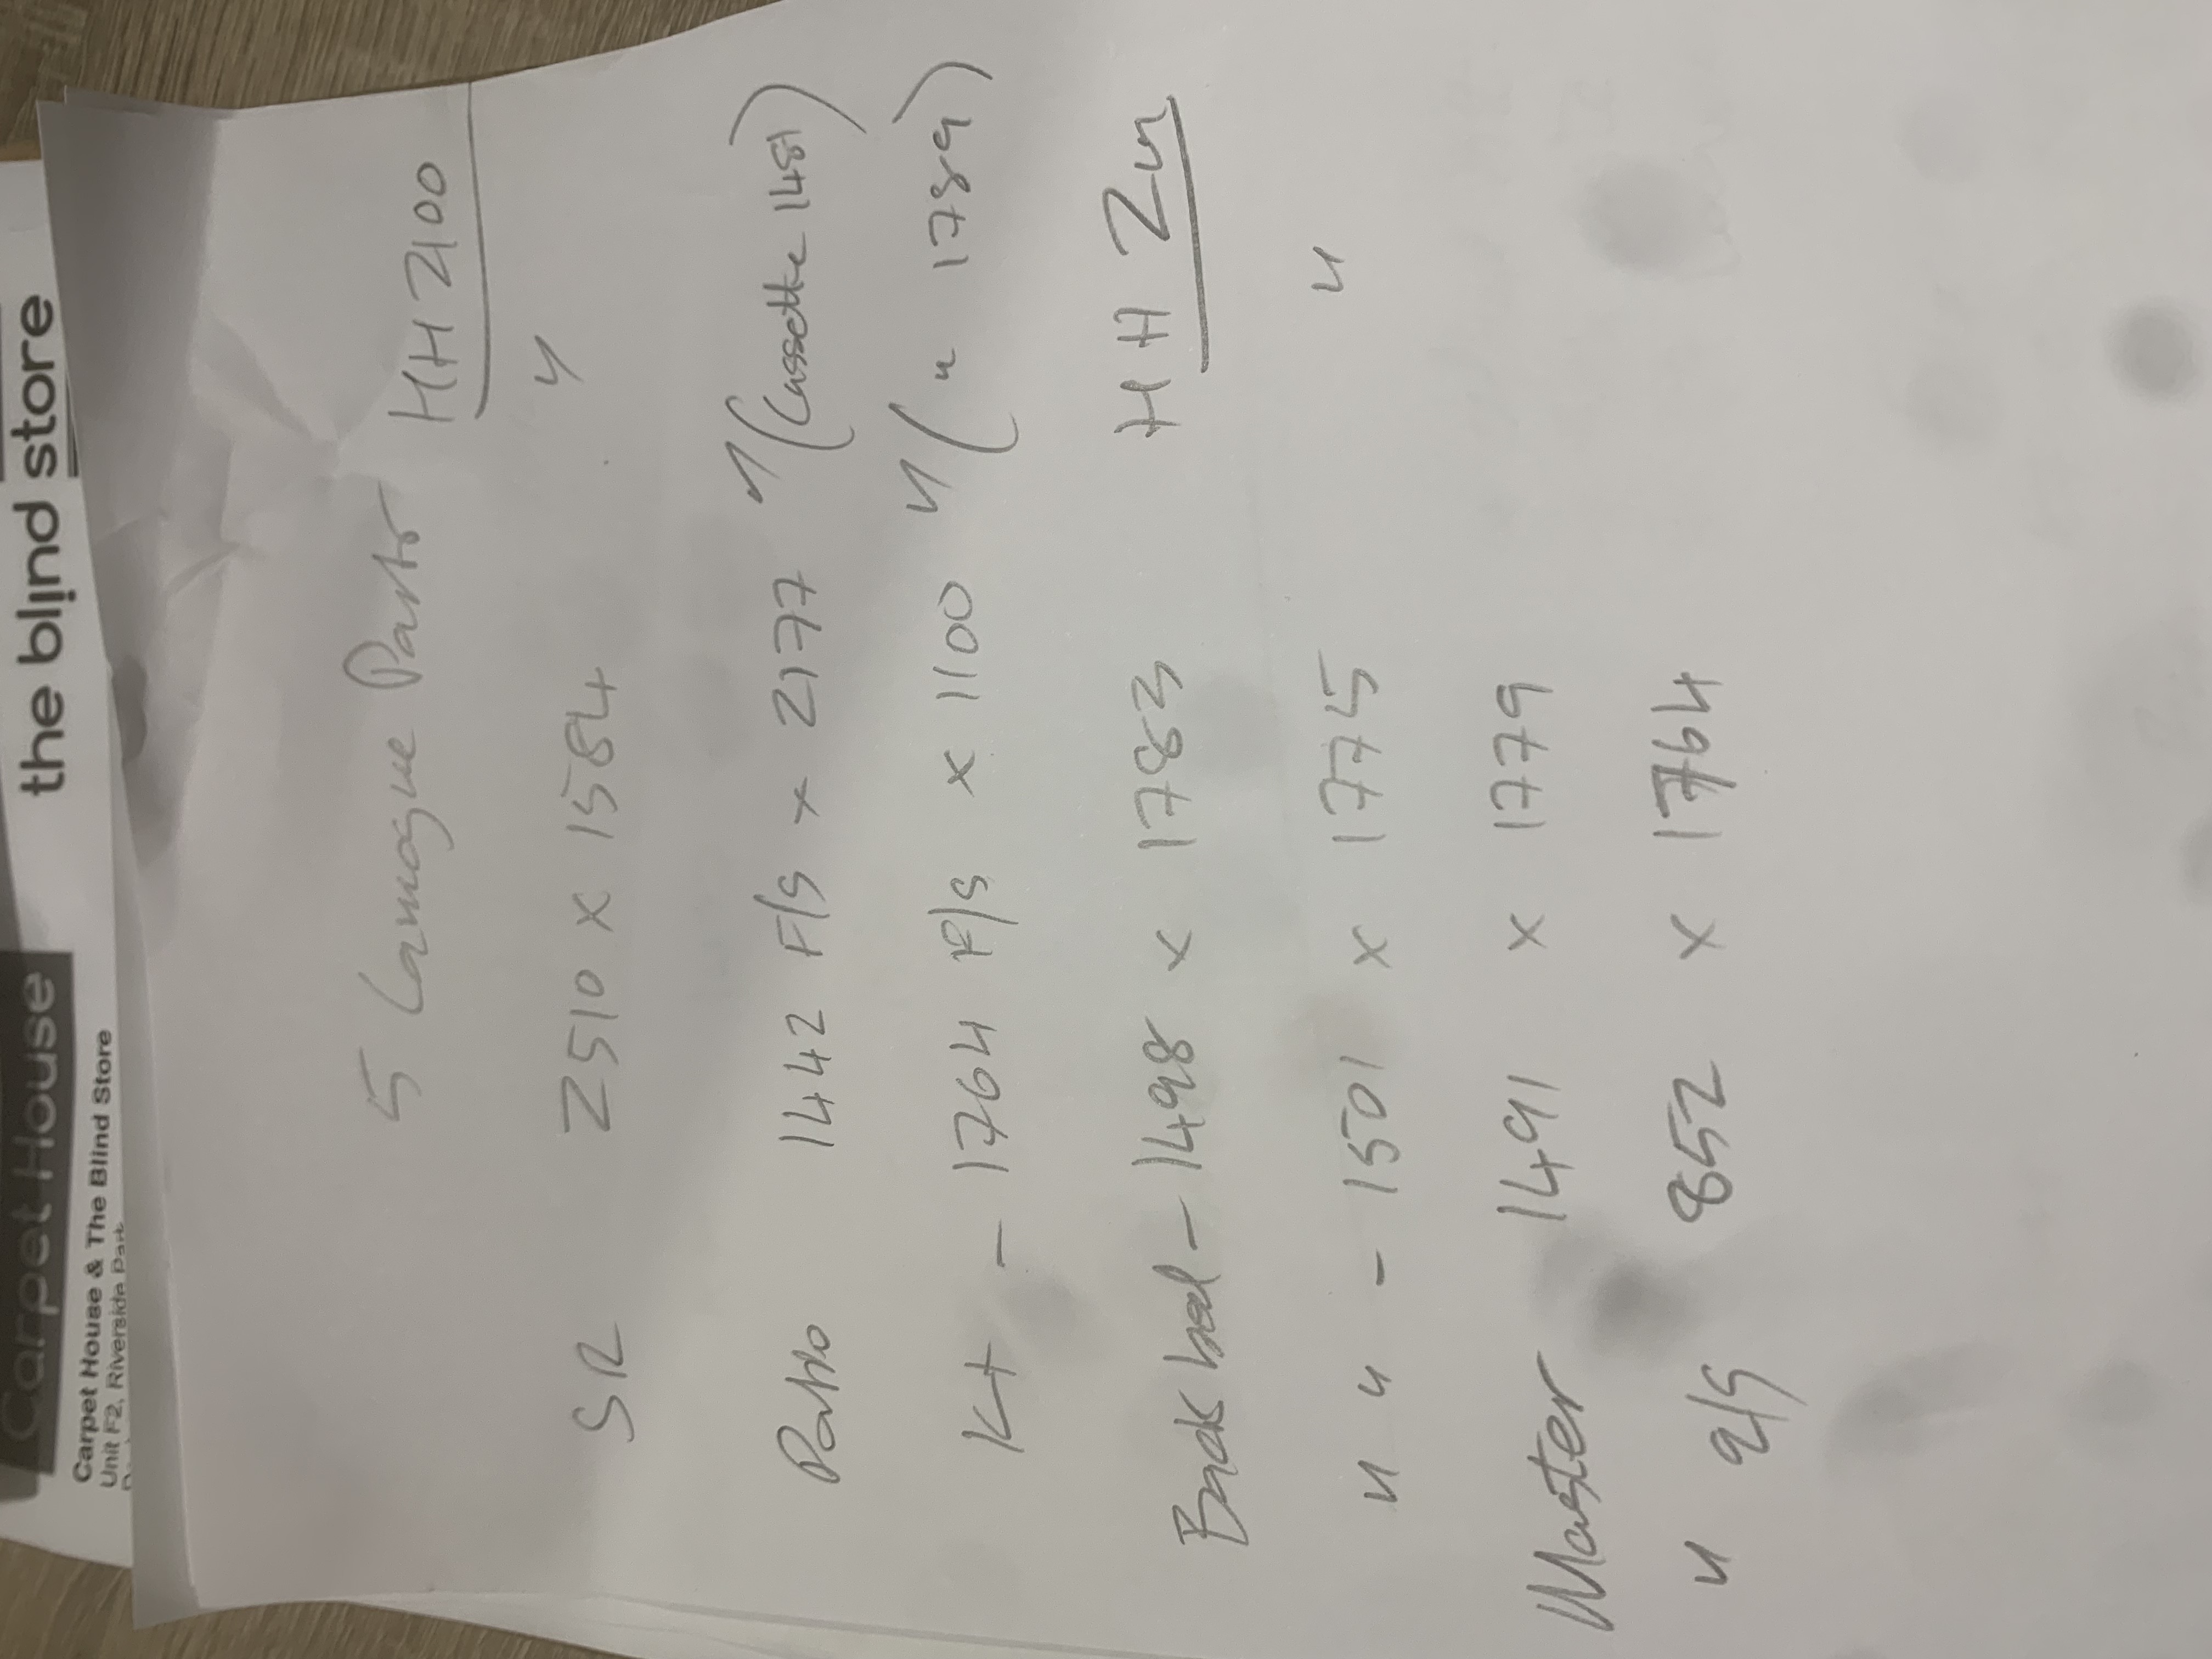 Carpet House
the blind store
Carpet House & The Blind Store
Unit F2, Riverside Park
5 HH 2100
SR 2510 x 1584 "
Patio 1442 F/S x 2177 "(Cassette 1481)
Kt - 1764 F/S x 1100 "( " 1789)
Back bed - 1498 x 1783 HH 2m
" " - 1501 x 1775 "
Master 1491 x 1779
" 852 x 1764